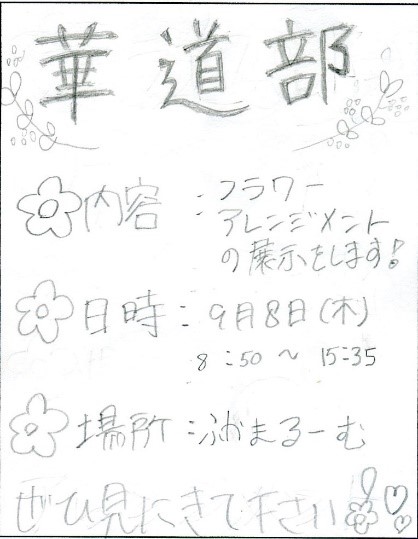 華道部
内容：フラワー
アレンジメント
の展示をします！
日時：9月8日(木)
8：50～15：35
場所：ふがまるーむ
ぜひ見にきて下さい！